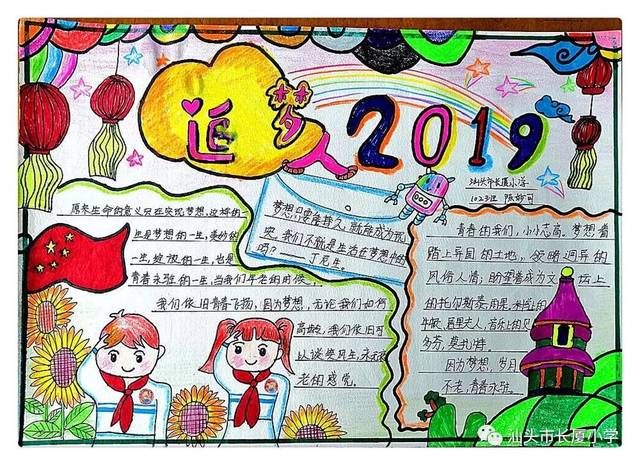 追梦 2019
汕头市长厦小学
原来生命的意义只在实现梦想,这样的一生
也是梦想的一生,美妙的
一生,健极的一生,也是
青春永驻的一生,当我们年老的时候,
我们依旧青春飞扬,因为梦想,无论我们如何
高龄,我们依旧可
以谈笑风生,永无衰
老的感觉。
梦想只要能持久,就能成为现
实。我们不就是生活在梦想中的
吗? ——丁尼生。
青春的我们,小小志高。梦想着
踏上异国的土地,领略迥异的
风俗人情;盼望着成为文坛上
的托尔斯泰、雨果,科学上的
牛顿、居里夫人,音乐上的贝
多芬、莫扎特。
因为梦想,岁月
不老,青春永驻。
汕头市长厦小学